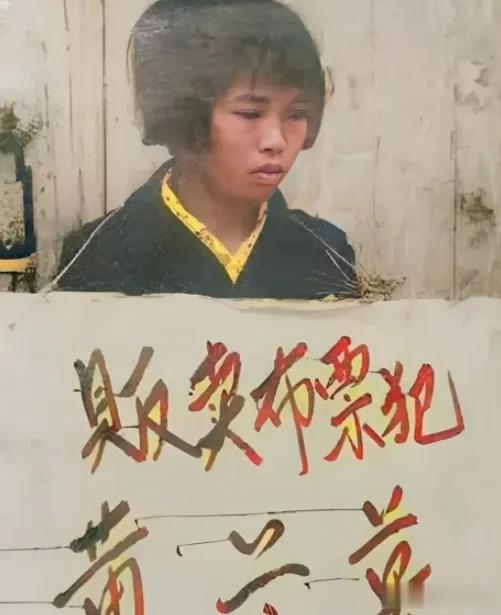 贩卖布票犯
黄